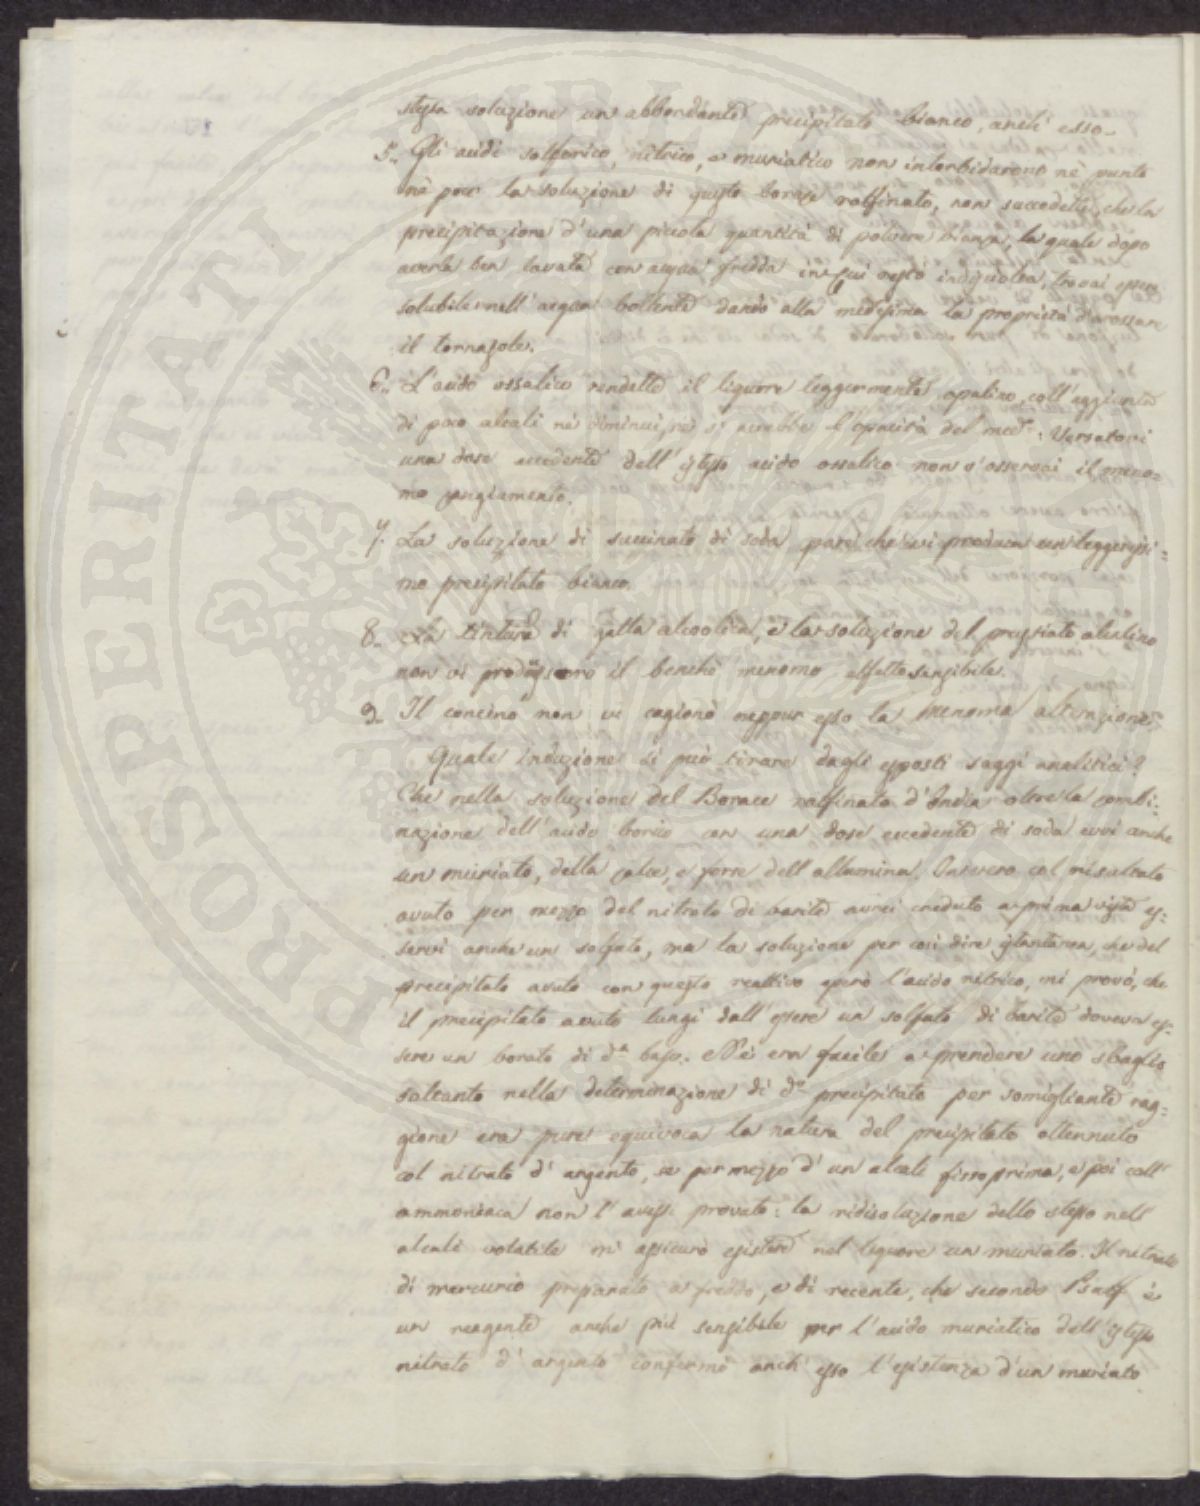 stessa soluzione un abbondante precipitato bianco, anch' esso.
5.. Gli acidi solforico, nitrico, e muriatico non intorbidarono nè punto
nè poco la soluzione di questo borace raffinato, non succedette, che la
precipitazione d'una piccola quantità di polvere bianca, la quale dopo
averla ben lavata con acqua fredda in cui restò indisciolta, trovai essere
solubile nell' acqua bollente dando alla medesima la proprietà d'arossare
il tornasole.
6.. L'acido ossalico rendette il liquore leggermente opalino, coll' aggiunta
di poco alcali nè diminuì, nè s' accrebbe l'opacità del med.º: Versatovi
una dose eccedente dell' istesso acido ossalico non v'osservai il meno-
mo cangiamento.
7. La soluzione di succinato di soda pare che vi produca un leggerissi-
mo precipitato bianco.
8.. La tintura di galla alcoolica, e la soluzione del prussiato alcalino
non vi produssero il benchè menomo effetto sensibile.
9.. Il concino non vi cagionò neppur esso la menoma alterazione.
Quale induzione si può tirare dagli esposti saggi analitici?
Che nella soluzione del Borace raffinato d'India oltre la combi-
nazione dell' acido borico con una dose eccedente di soda evvi anche
un muriato, della calce, e forse dell' allumina. Invero col risultato
avuto per mezzo del nitrato di barite avrei creduto a prima vista es-
servi anche un solfato, ma la soluzione per così dire istantanea, che del
precipitato avuto con questo reattivo operò l'acido nitrico, mi provò, che
il precipitato avuto lungi dall' essere un solfato di barite doveva es-
sere un borato di d.ª base. Nè era facile a prendere uno sbaglio
soltanto nella determinazione di d.º precipitato per somigliante rag-
gione era pure equivoca la natura del precipitato ottennuto
col nitrato d' argento, se per mezzo d' un alcali fisso prima, e poi coll'
ammoniaca non l' avessi provato: la ridisoluzione dello stesso nell'
alcali volatile m' assicurò esistere nel liquore un muriato. Il nitrato
di mercurio preparato a freddo, e di recente, che secondo è
un reagente anche più sensibile per l'acido muriatico dell' istesso
nitrato d' argento confermò anch' esso l'esistenza d'un muriato